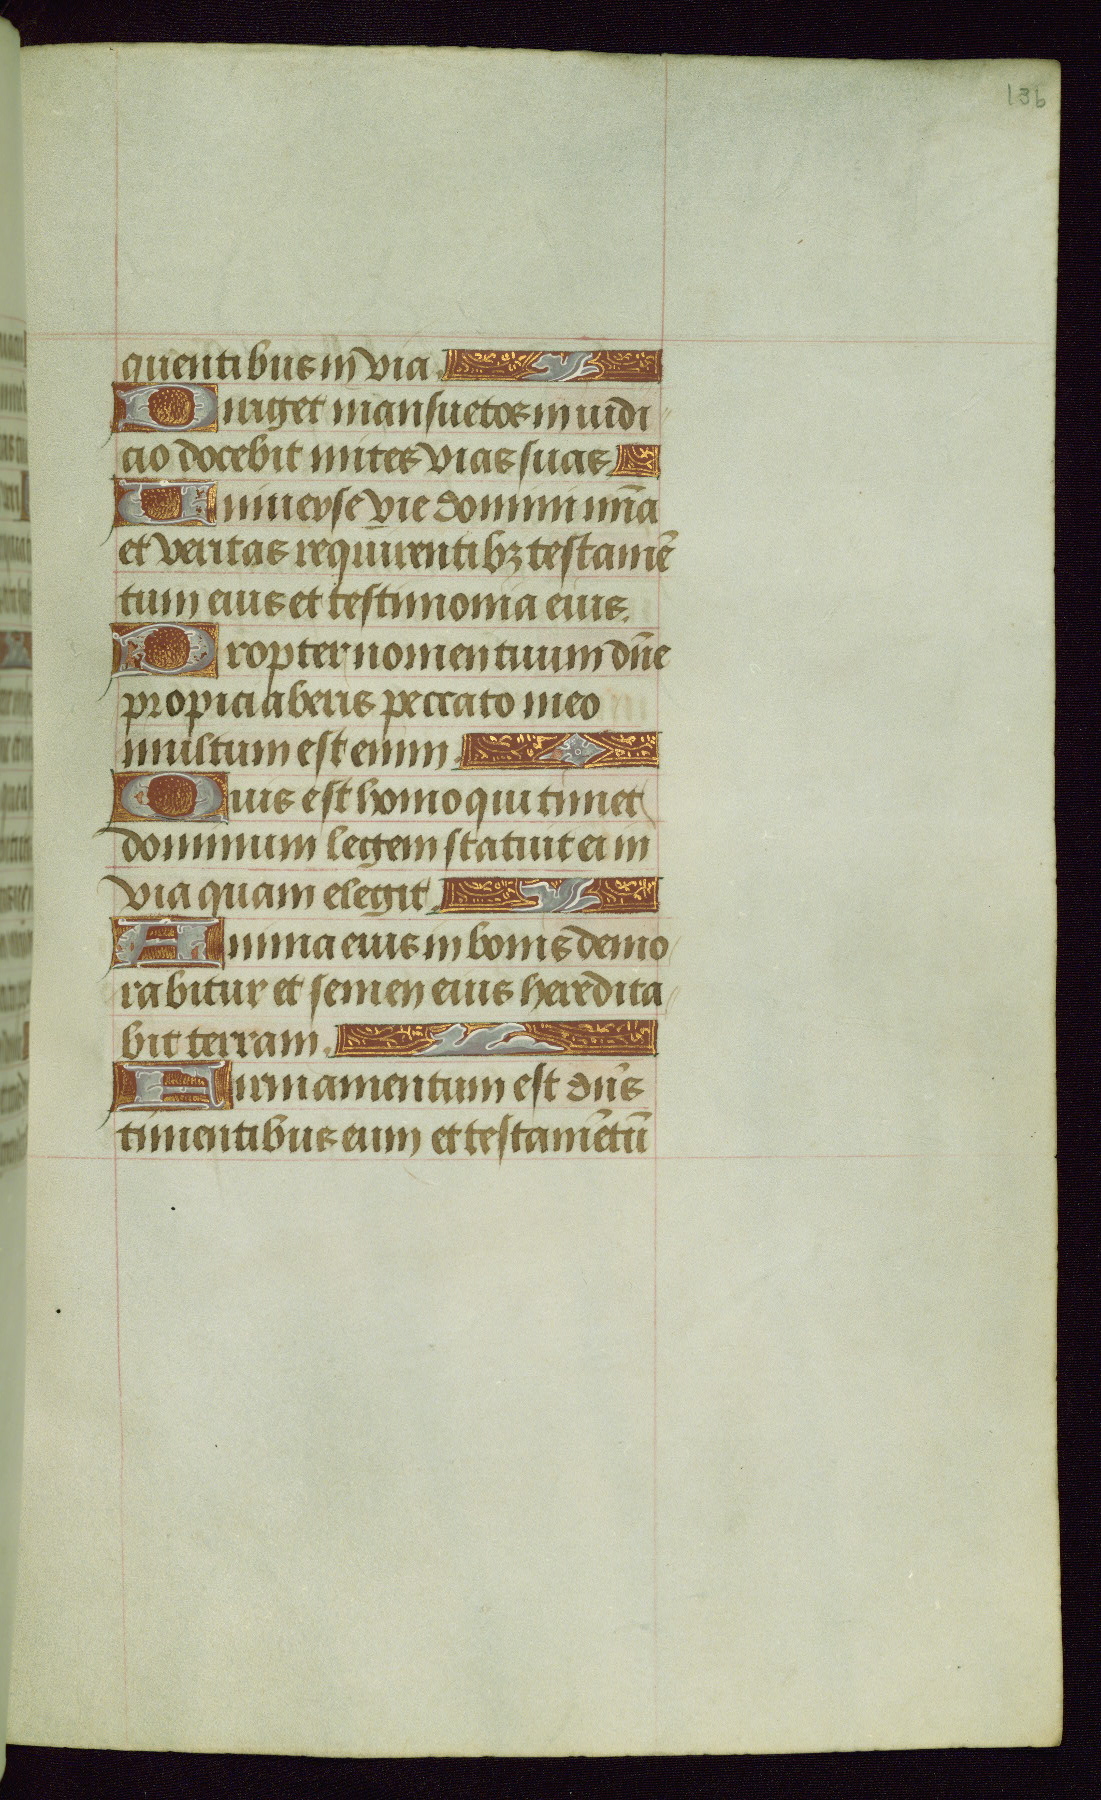 136
quentibus in via.
Diriget mansuetos in iudi
cio docebit mites vias suas
Uniuerse vie domini mīa
et veritas requirentibꝫ testamē
tum eius et testimonia eius.
Propter nomen tuum dn̄e
propiciaberis peccato meo
multum est enim.
Quis est homo qui timet
dominum legem statuit ei in
via quam elegit.
Anima eius in bonis demo
rabitur et semen eius heredita
bit terram.
Firmamentum est dn̄s
timentibus eum et testamētū